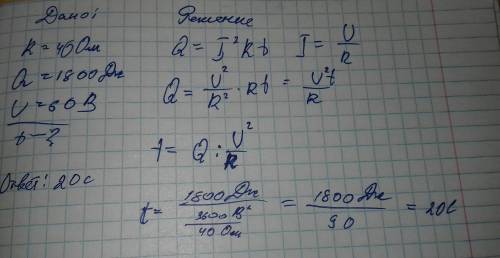 Дано:
R = 40 Ом
Q = 1800 Дж
U = 60 В
t - ?
Ответ: 20 с
Решение
Q = I²Rt I = U/R
Q = U²/R² · Rt = U²t/R
t = Q : U²/R
t = 1800 Дж / (3600 В² / 40 Ом) = 1800 Дж / 90 = 20 с